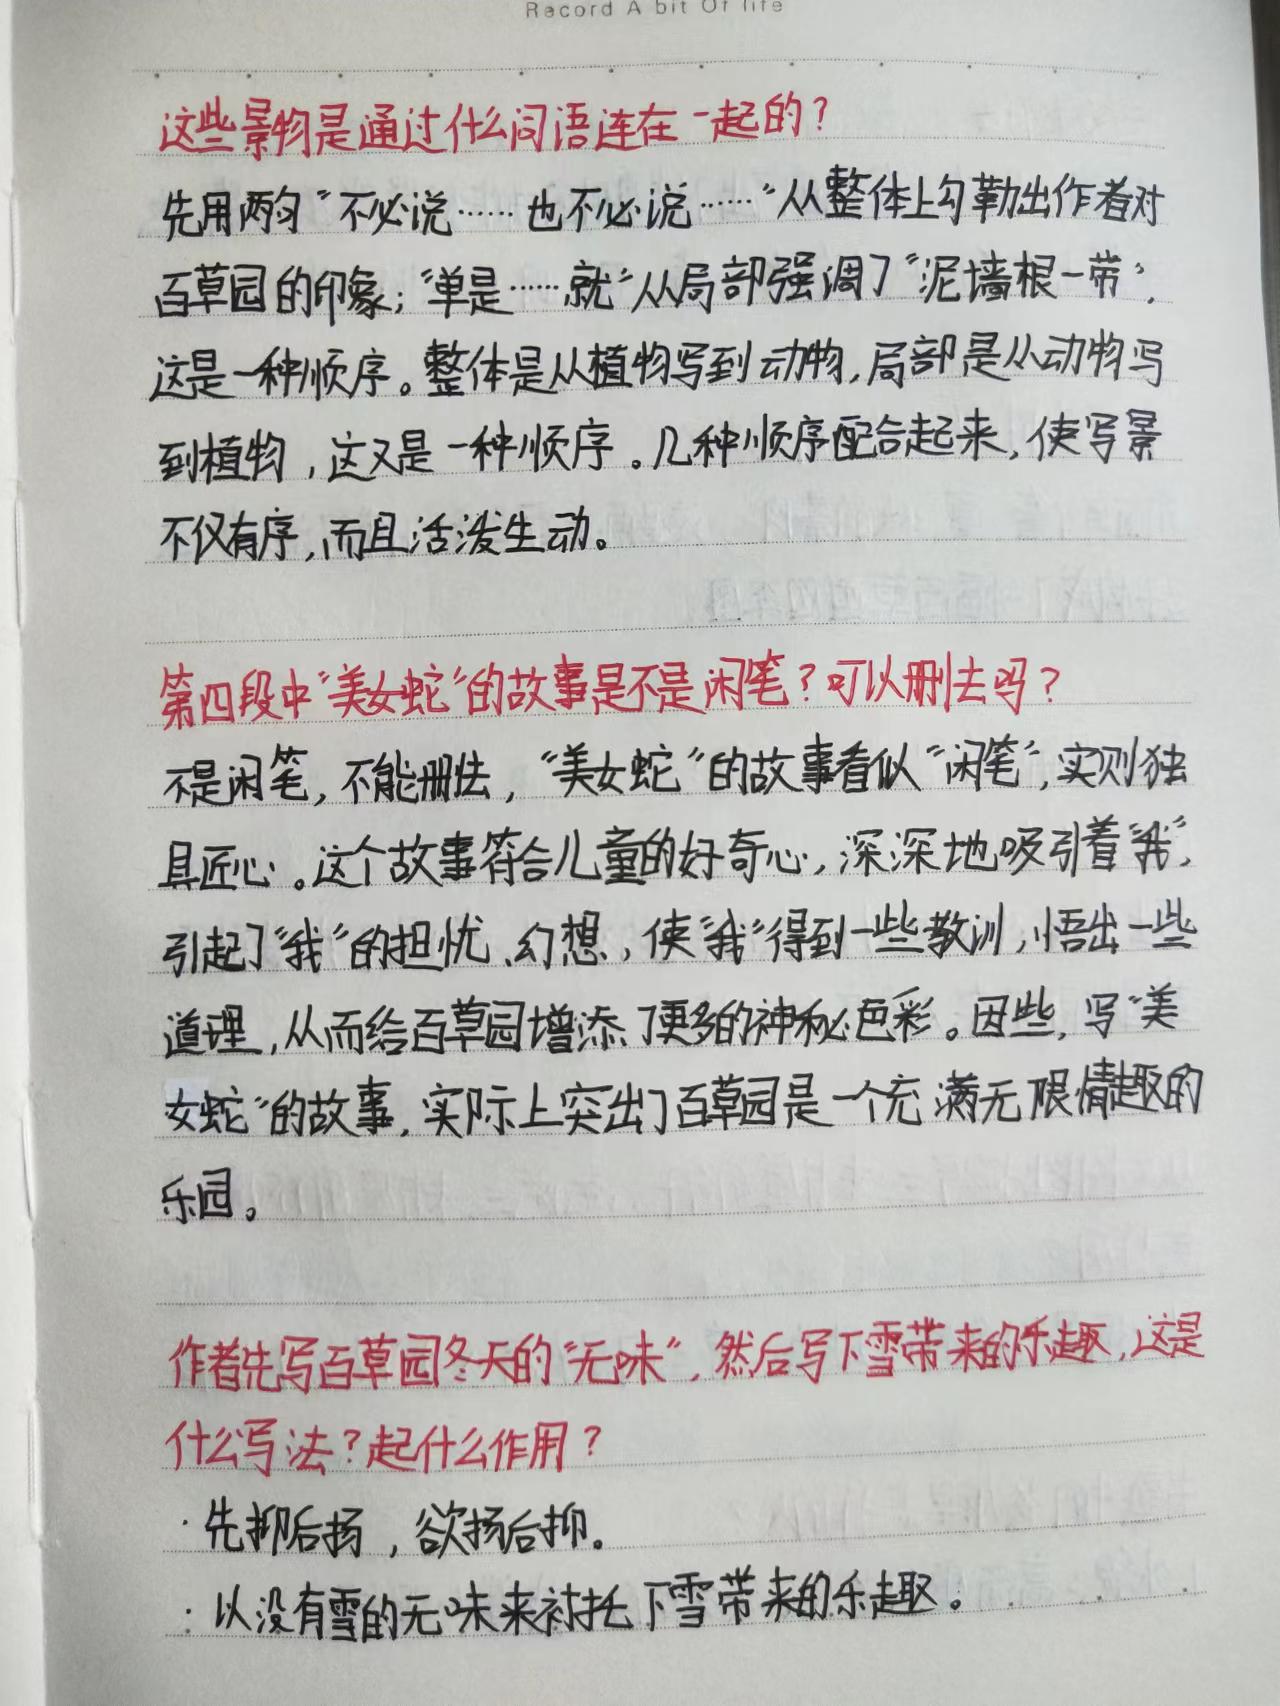 Record A bit Of life
这些景物是通过什么词语连在一起的？
先用两句“不必说……也不必说……”从整体上勾勒出作者对
百草园的印象；“单是……就”从局部强调了“泥墙根一带”，
这是一种顺序。整体是从植物写到动物，局部是从动物写
到植物，这又是一种顺序。几种顺序配合起来，使写景
不仅有序，而且活泼生动。
第四段中“美女蛇”的故事是不是闲笔？可以删去吗？
不是闲笔，不能删去，“美女蛇”的故事看似“闲笔”，实则独
具匠心。这个故事符合儿童的好奇心，深深地吸引着“我”，
引起了“我”的担忧、幻想，使“我”得到一些教训，悟出一些
道理，从而给百草园增添了更多的神秘色彩。因些，写“美
女蛇”的故事，实际上突出了百草园是一个充满无限情趣的
乐园。
作者先写百草园冬天的“无味”，然后写下雪带来的乐趣，这是
什么写法？起什么作用？
·先抑后扬，欲扬后抑。
·以没有雪的无味来衬托下雪带来的乐趣。